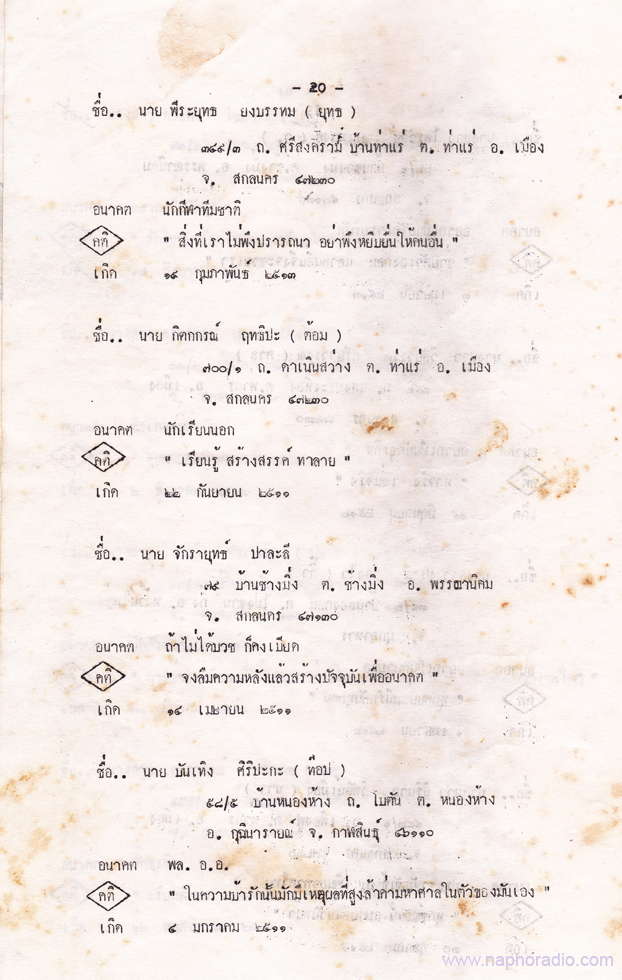 - 20 -
ชื่อ.. นาย พีระยุทธ ยงบรรทม ( ยุทธ )
๓๔๙/๓ ถ. ศรีสงคราม บ้านท่าแร่ ต. ท่าแร่ อ. เมือง
จ. สกลนคร ๔๗๒๓๐
อนาคต นักกีฬาทีมชาติ
คติ " สิ่งที่เราไม่พึงปรารถนา อย่าพึงหยิบยื่นให้คนอื่น "
เกิด ๑๙ กุมภาพันธ์ ๒๕๑๓
ชื่อ.. นาย กิตกกรณ์ ฤทธิปะ ( ต้อม )
๗๐๐/๑ ถ. ดาเนินสว่าง ต. ท่าแร่ อ. เมือง
จ. สกลนคร ๔๗๒๓๐
อนาคต นักเรียนนอก
คติ " เรียนรู้ สร้างสรรค์ ทาลาย "
เกิด ๒๒ กันยายน ๒๕๑๑
ชื่อ.. นาย จักรายุทธ์ ปาละลี
๗๙ บ้านช้างมิ่ง ต. ช้างมิ่ง อ. พรรณานิคม
จ. สกลนคร ๔๗๑๓๐
อนาคต ถ้าไม่ได้บวช ก็คงเบียด
คติ " จงลืมความหลังแล้วสร้างปัจจุบันเพื่ออนาคต "
เกิด ๑๔ เมษายน ๒๕๑๑
ชื่อ.. นาย บันเทิง ศิริปะกะ ( ท๊อป )
๕๘/๕ บ้านหนองห้าง ถ. โบตัน ต. หนองห้าง
อ. กุฉินารายณ์ จ. กาฬสินธุ์ ๔๖๑๑๐
อนาคต พล. อ.อ.
คติ " ในความบ้ารักนั้นมักมีเหตุผลที่สูงล้าค่ามหาศาลในตัวของมันเอง "
เกิด ๔ มกราคม ๒๕๑๑
www.naphoradio.com